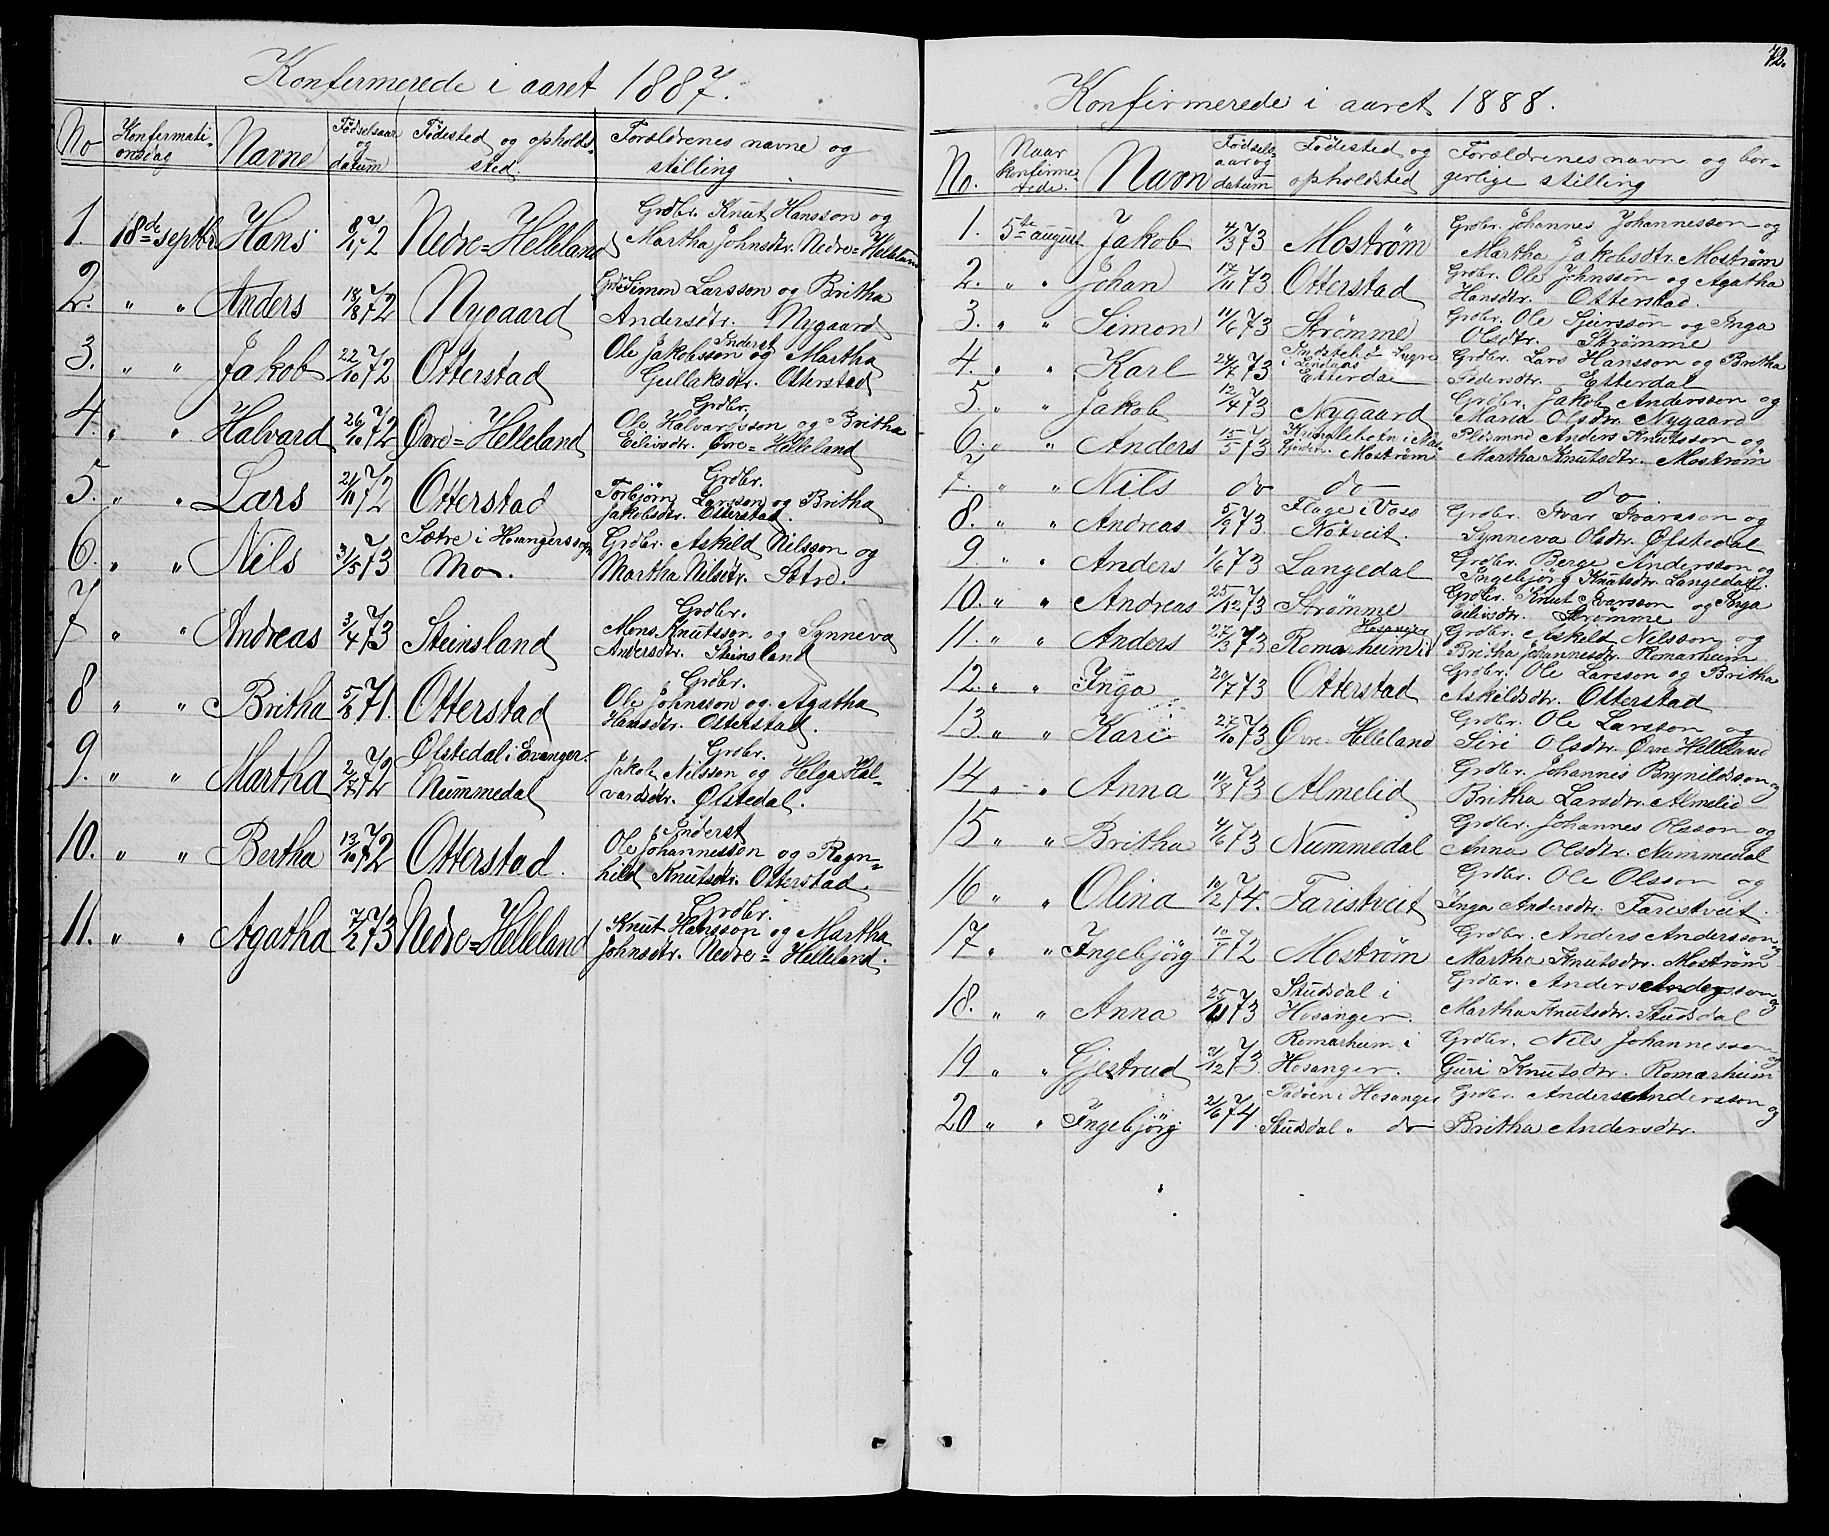 Konfermerede i aaret 1887.
No
Konfermati-
onsdag
Navne
Fødselsaar
og
datum
Fødested og opholds-
sted.
Forældrenes navne og
stilling
1. 18de septbr. Hans 72 Nedre=Helleland
Grdbr. Knut Hansson og
Martha Johnsdtr. Nedre=Helleland
2. " " Anders 18/8 72 Nygaard
Simon Larsson og Britha
Andersdtr. Nygaard
3. " " Jakob 22/10 72 Otterstad
Inderst
Ole Jakobsson og Martha
Gullaksdtr. Otterstad
4. " " Halvard 26/10 72 Øvre=Helleland
Grdbr.
Ole Halvardsson og Britha
Eilivsdtr. Øvre=Helleland
5. " " Lars 21/11 72 Otterstad
Grdbr.
Torbjørn Larsson og Britha
Jakobsdtr. Otterstad.
6. " " Nils 3/5 73
Sætre i Hosangers sogn
Mo.
Grdbr. Askild Nilsson og
Martha Nilsdtr. Sætre.
7 " " Andreas 3/4 73 Steinsland
Grdbr.
Mons Knutsson og Synneva
Andersdtr. Steinsland
8 " " Britha 5/8 71. Otterstad
Grdbr.
Ole Johnsson og Agatha
Hansdtr. Otterstad.
9. " " Martha 72
Ølstedal i Evanger.
Nummedal
Grdbr.
Jakob Nilsson og Helga Hal-
vardsdtr. Ølstedal.
10. " " Bertha 13/10 72 Otterstad.
Inderst
Ole Johannesson og Ragn-
hild Knutsdtr. Otterstad.
11. " " Agatha 7/2 73 Nedre=Helleland
Grdbr.
Knut Hansson og Martha
Johnsdtr. Nedre=Helleland.
42.
Konfirmerede i aaret 1888.
No.
Naar
konfirme
rede.
Navn
Fødsels
aar og
datum
Fødested og
opholdsted
Forældrenes navn og bor-
gerlige stilling
1. 5te august Jakob 4/3 73 Mostrøm
Grdbr. Johannes Johannesson og
Martha Jakobsdtr. Mostrøm
2. " " Johan 17/11 73 Otterstad
Grdbr. Ole Johnsson og Agatha
Hansdtr. Otterstad.
3. " " Simon 11/6 73 Strømme
Grdbr. Ole Sjursson og Inga
Olsdtr. Strømme
4. " " Karl 73
i Lindaas
Etterdal
Grdbr. Lars Hansson og Britha
Pedersdtr. Etterdal
5. " " Jakob 12/4 73 Nygaard
Grdbr. Jakob Andersson og
Maria Olsdtr. Nygaard
6. " " Anders 15/5 73
Mostrøm
Pldsmnd Anders Knutsson og
Martha Knutsdtr. Mostrøm
7. " " Nils do do do
8. " " Andreas 5/9 73
Flage i Voss
Nötveit.
Grdbr. Ivar Ivarsson og
Synneva Olsdtr. Ølstedal
9. " " Anders 1/6 73 Langedal
Grdbr. Berge Andersson og
Ingebjörg Knutsdtr. Langedal.
10. " " Andreas 25/12 73 Strømme
Grdbr. Knut Ivarsson og Inga
Eilivsdtr. Strømme
11. " " Anders 27/3 73
Hosanger
Romarheim i
Grdbr. Askild Nilsson og
Britha Johannesdtr. Romarheim
12. " " Inga 20/7 73 Otterstad
Grdbr. Ole Larsson og Britha
Askildsdtr. Otterstad
13 " " Kari 27/10 73 Øvre-Helleland
Grdbr. Ole Larsson og
Siri Olsdtr. Øvre Helleland
14 " " Anna 11/8 73 Almelid
Grdbr. Johannes Brynildsson og
Britha Larsdtr. Almelid
15 " " Britha 4/6 73 Nummedal
Grdbr. Johannes Olsson og
Anna Olsdtr. Nummedal
16 " " Olina 10/2 74. Faristveit
Grdbr. Ole Olsson og
Inga Andersdtr. Faristveit.
17 " " Ingebjörg 72 Mostrøm
Grdbr. Anders Andersson og
Martha Knutsdtr. Mostrøm
18. " " Anna 25/11 73
Studsdal i
Hosanger.
Grdbr. Anders Andersson og
Martha Knutsdtr. Studsdal
19 " " Gjestrud 31/12 73.
Romarheim i
Hosanger.
Grdbr. Nils Johannesson og
Guri Knutsdtr. Romarheim
20 " " Ingebjörg 21/6 74.
Padöen i Hosanger
Studsdal " do
Grdbr. Anders Andersson og
Britha Andersdtr.